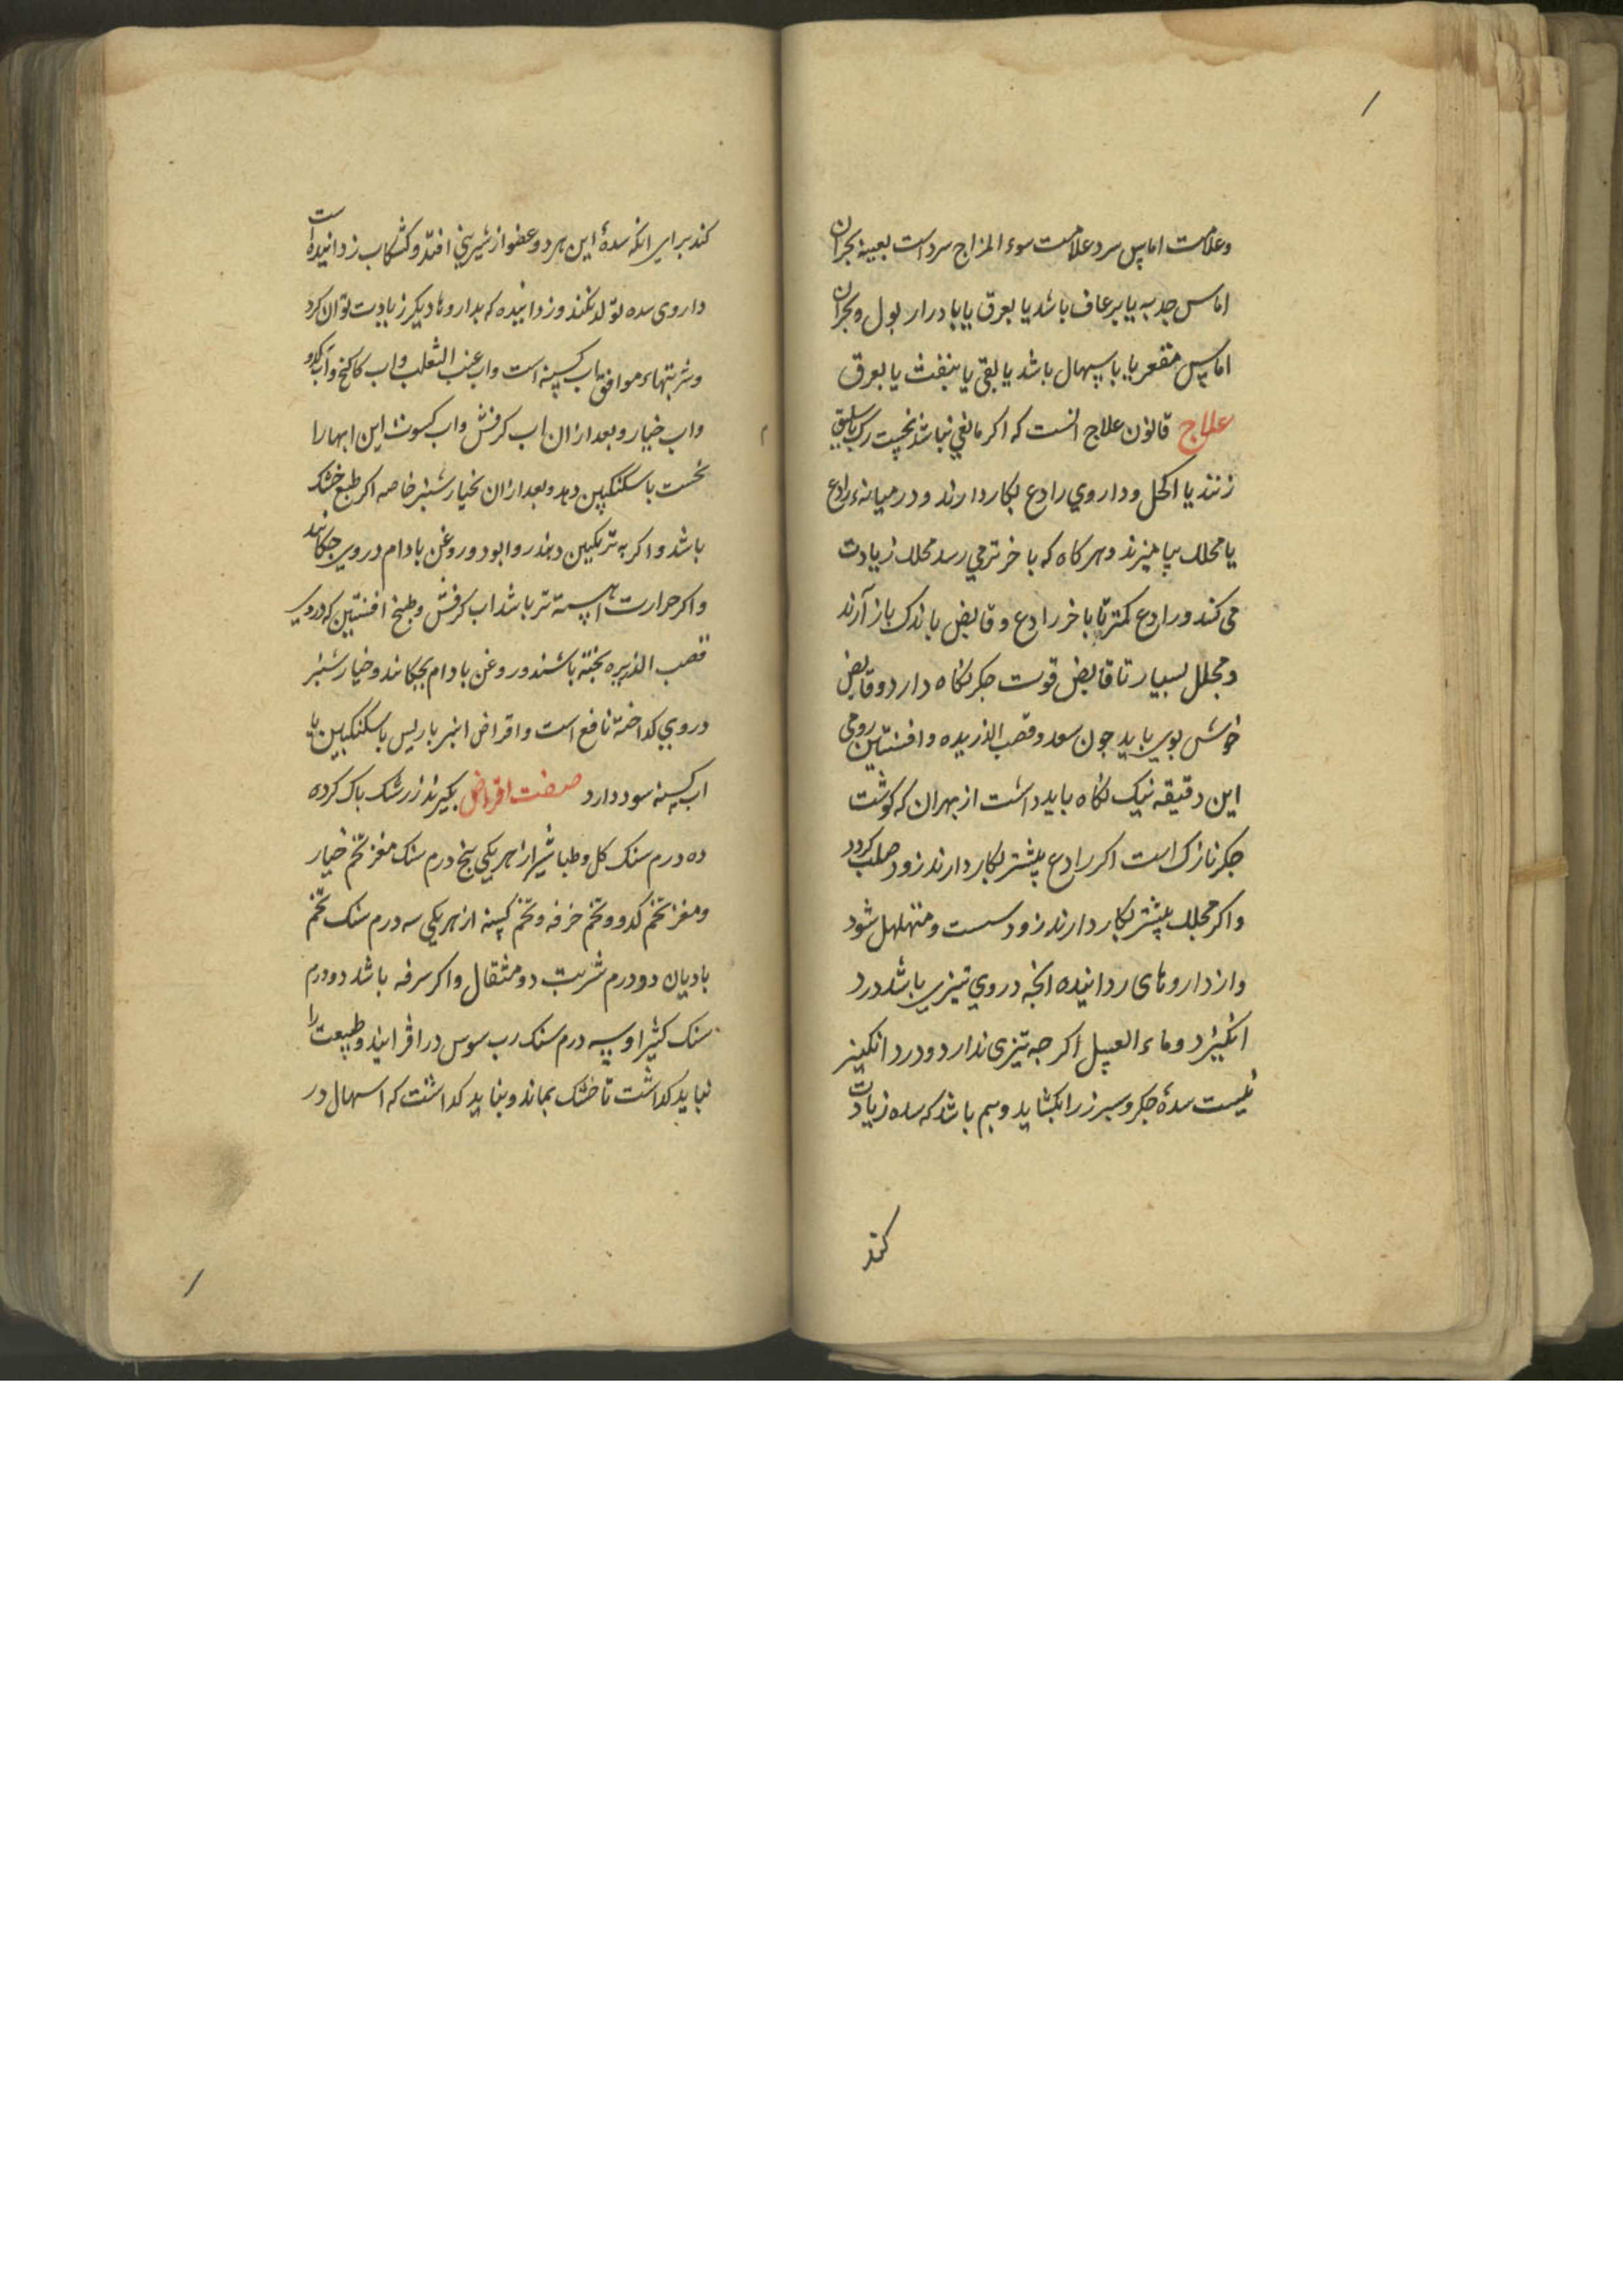 وعلامت اماس سرد علامت سوء المزاج سرد است بعینه بحران
اماس حدبه یا برعاف باشد یا بعرق یا بادرار بول و بحران
اماس مقعر یا باسهال باشد یا بقی یا بنفث یا بعرق
علاج قانون علاج انست که اکر مانعی نباشد نخست رک باسلیق
زنند یا اکحل و داروی رادع بکار دارند و در میانه رادع
یا محلل بیامیزند و هرکاه که باخر تر می رسد محلل زیادت
می کند و رادع کمتر تا باخر رادع و قابض باندک باز آرند
و محلل بسیار تا قابض قوت جکر نکاه دارد و قابض
خوش بوی باید جون سعد و قصب الذریده و افسنتین رومی
این دقیقه نیک نکاه باید داشت از بهر ان که کوشت
جکر نازک است اکر رادع بیشتر بکار دارند زود صلب کردد
واکر محلل بیشتر بکار دارند زود سست و متهلهل شود
واز داروهای زداینده انجه در وی تیزی باشد درد
انکیزد و ماء العسل اکر جه تیزی ندارد و درد انکیز
نیست سدهٔ جکر و سبرز را بکشاید و بیم باشد که سده زیادت
کند
کند برای انکه سدهٔ این هر دو عضو از شیرینی افتد و کشکاب زداینده است
داروی سده تولد نکند و زداینده که بداروها دیکر زیادت توان کرد
و شربتهاء موافق اب کسنه است و اب عنب الثعلب و اب کاکنج و آب کدو
واب خیار و بعد ازان اب کرفش و اب کسوث این ابها را
نخست با سکنکبین دهد و بعد ازان بخیارشنبر خاصه اکر طبع خشک
باشد و اکر به ترنکبین دهند روا بود و روغن بادام در وی جکانند
واکر حرارت اهسته تر باشد اب کرفش و طبخ افسنتین که در وی
قصب الذیره بخته باشند و روغن بادام بجکانند و خیارشنبر
در وی کداخته نافع است و اقراض انبرباریس با سکنکبین یا
اب کسنه سود دارد صفت اقراض بکیرند زرشک باک کرده
ده درم سنک کل و طباشیر از هر یکی بنج درم سنک مغز تخم خیار
و مغز تخم کدو و تخم خرفه و تخم کسنه از هر یکی سه درم سنک تخم
بادیان دو درم شربت دو مثقال واکر سرفه باشد دو درم
سنک کثیرا و سه درم سنک رب سوس در افزایند و طبیعت را
نباید کداشت تا خشک بماند و بناید کداشت که اسهال در